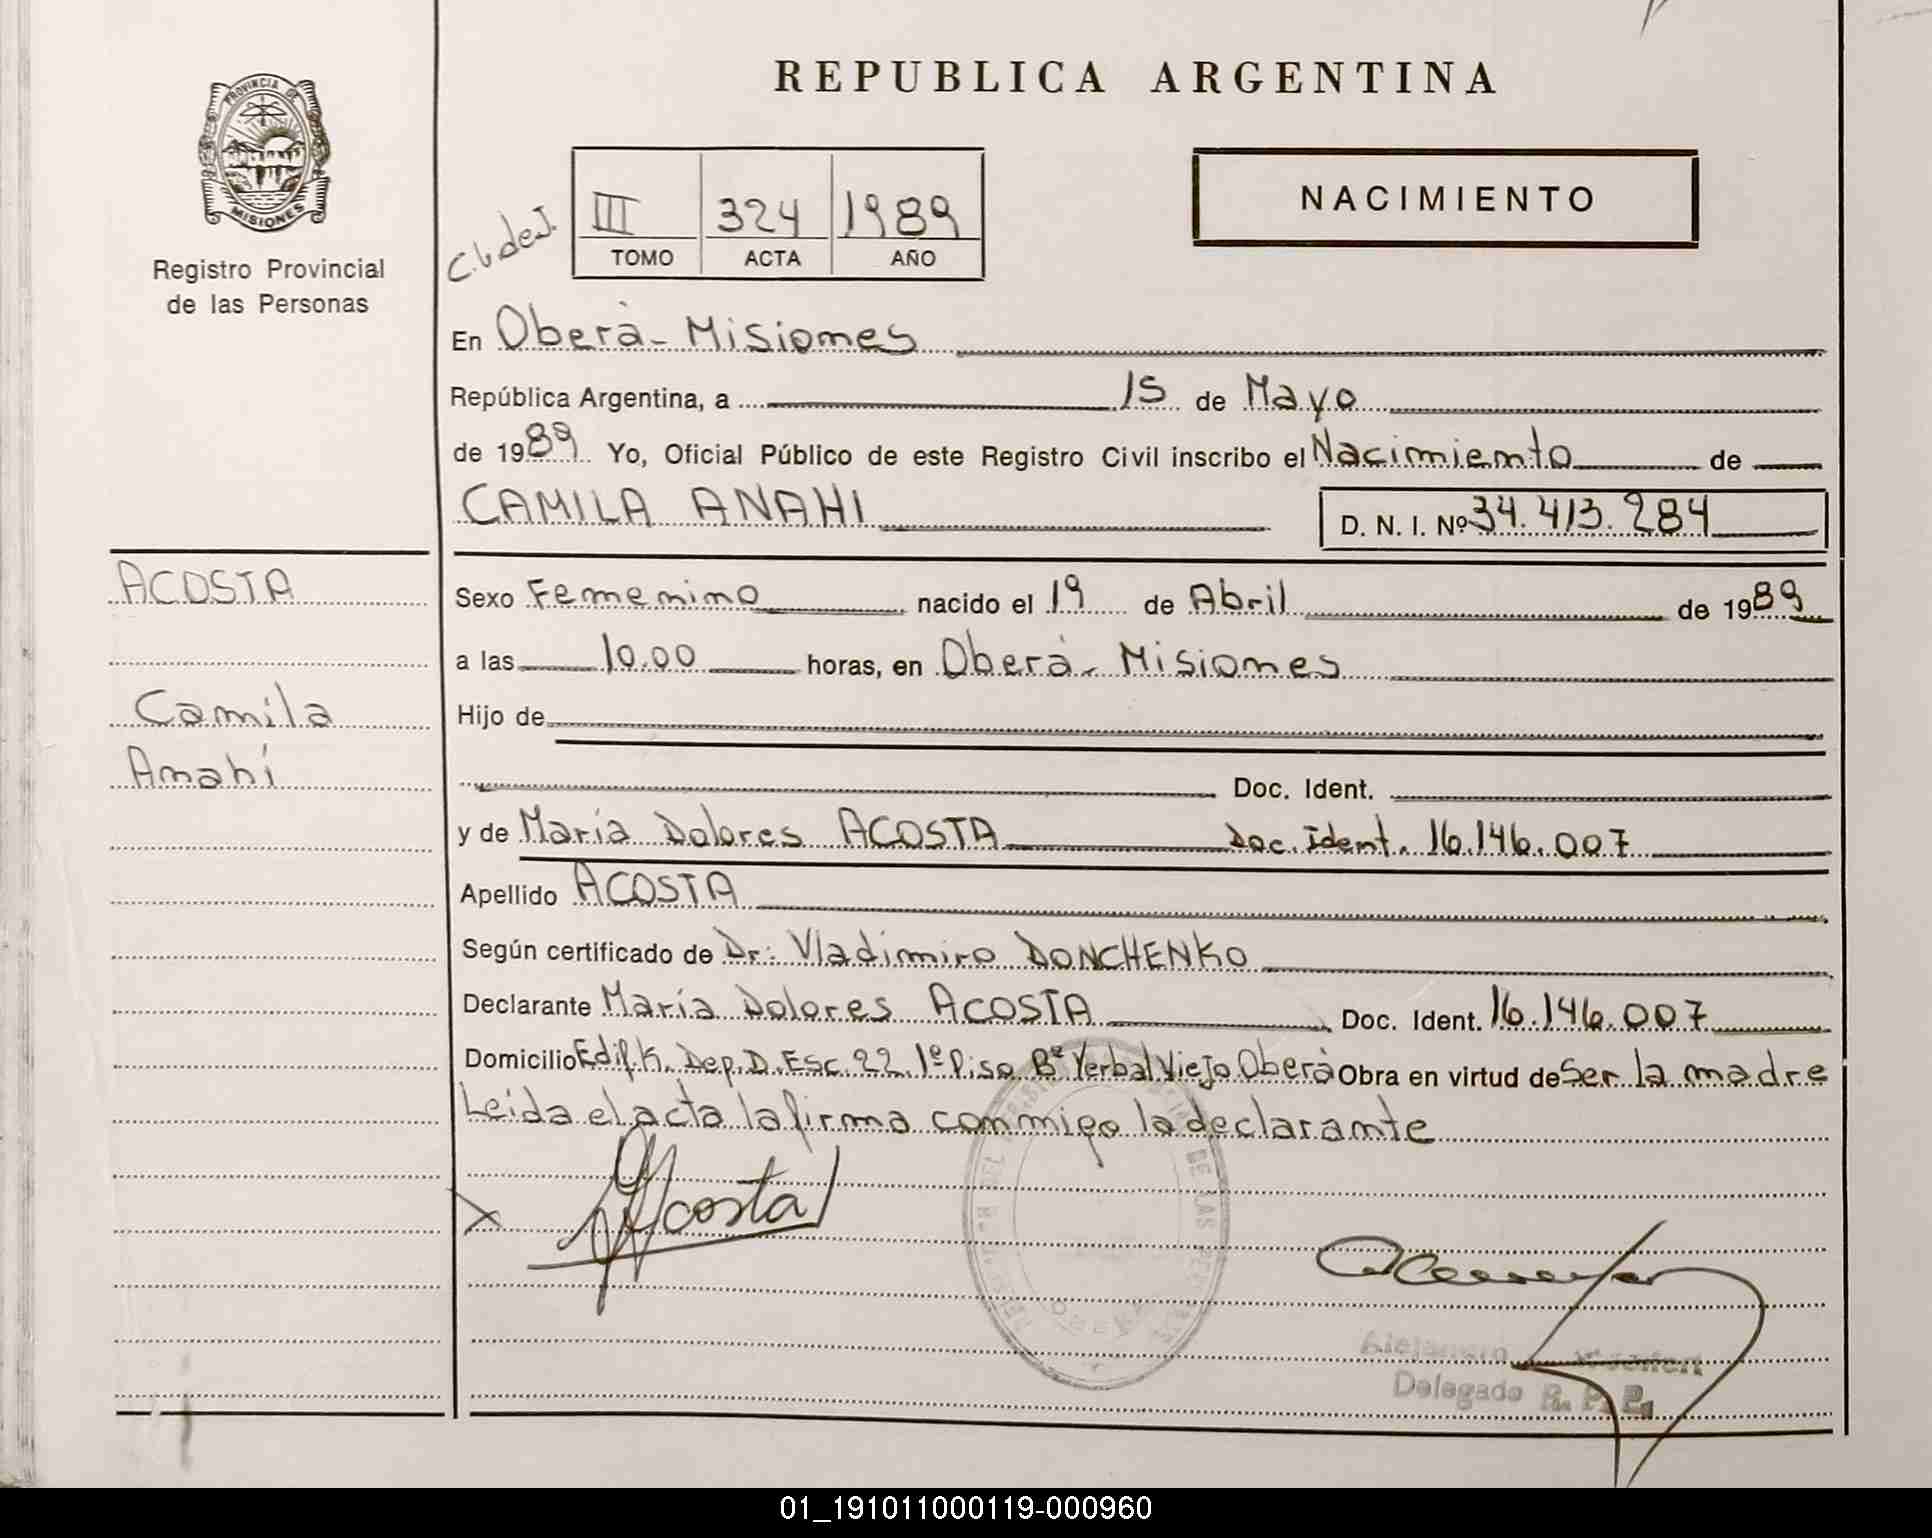 REPUBLICA ARGENTINA
PROVINCIA DE
MISIONES
Registro Provincial
de las Personas
III 324 1989
TOMO ACTA AÑO
NACIMIENTO
En Oberà - Misiones
República Argentina, a 15 de Mayo
de 1989 Yo, Oficial Público de este Registro Civil inscribo el Nacimiento de
CAMILA ANAHI D. N. I. Nº 34.413.284
ACOSTA
Camila
Anahí
Sexo Femenino nacido el 19 de Abril de 1989
a las 10.00 horas, en Oberà - Misiones
Hijo de
Doc. Ident.
y de María Dolores ACOSTA Doc. Ident. 16.146.007
Apellido ACOSTA
Según certificado de Dr: Vladimiro DONCHENKO
Declarante María Dolores ACOSTA Doc. Ident. 16.146.007
Domicilio Edif. K. Dep. D. Esc. 22. 1º Piso Bº Yerbal Viejo Oberà Obra en virtud de Ser la madre
Leida el acta la firma conmigo la declarante
Acosta
DE LAS
Delegado R. P. P.
01_191011000119-000960